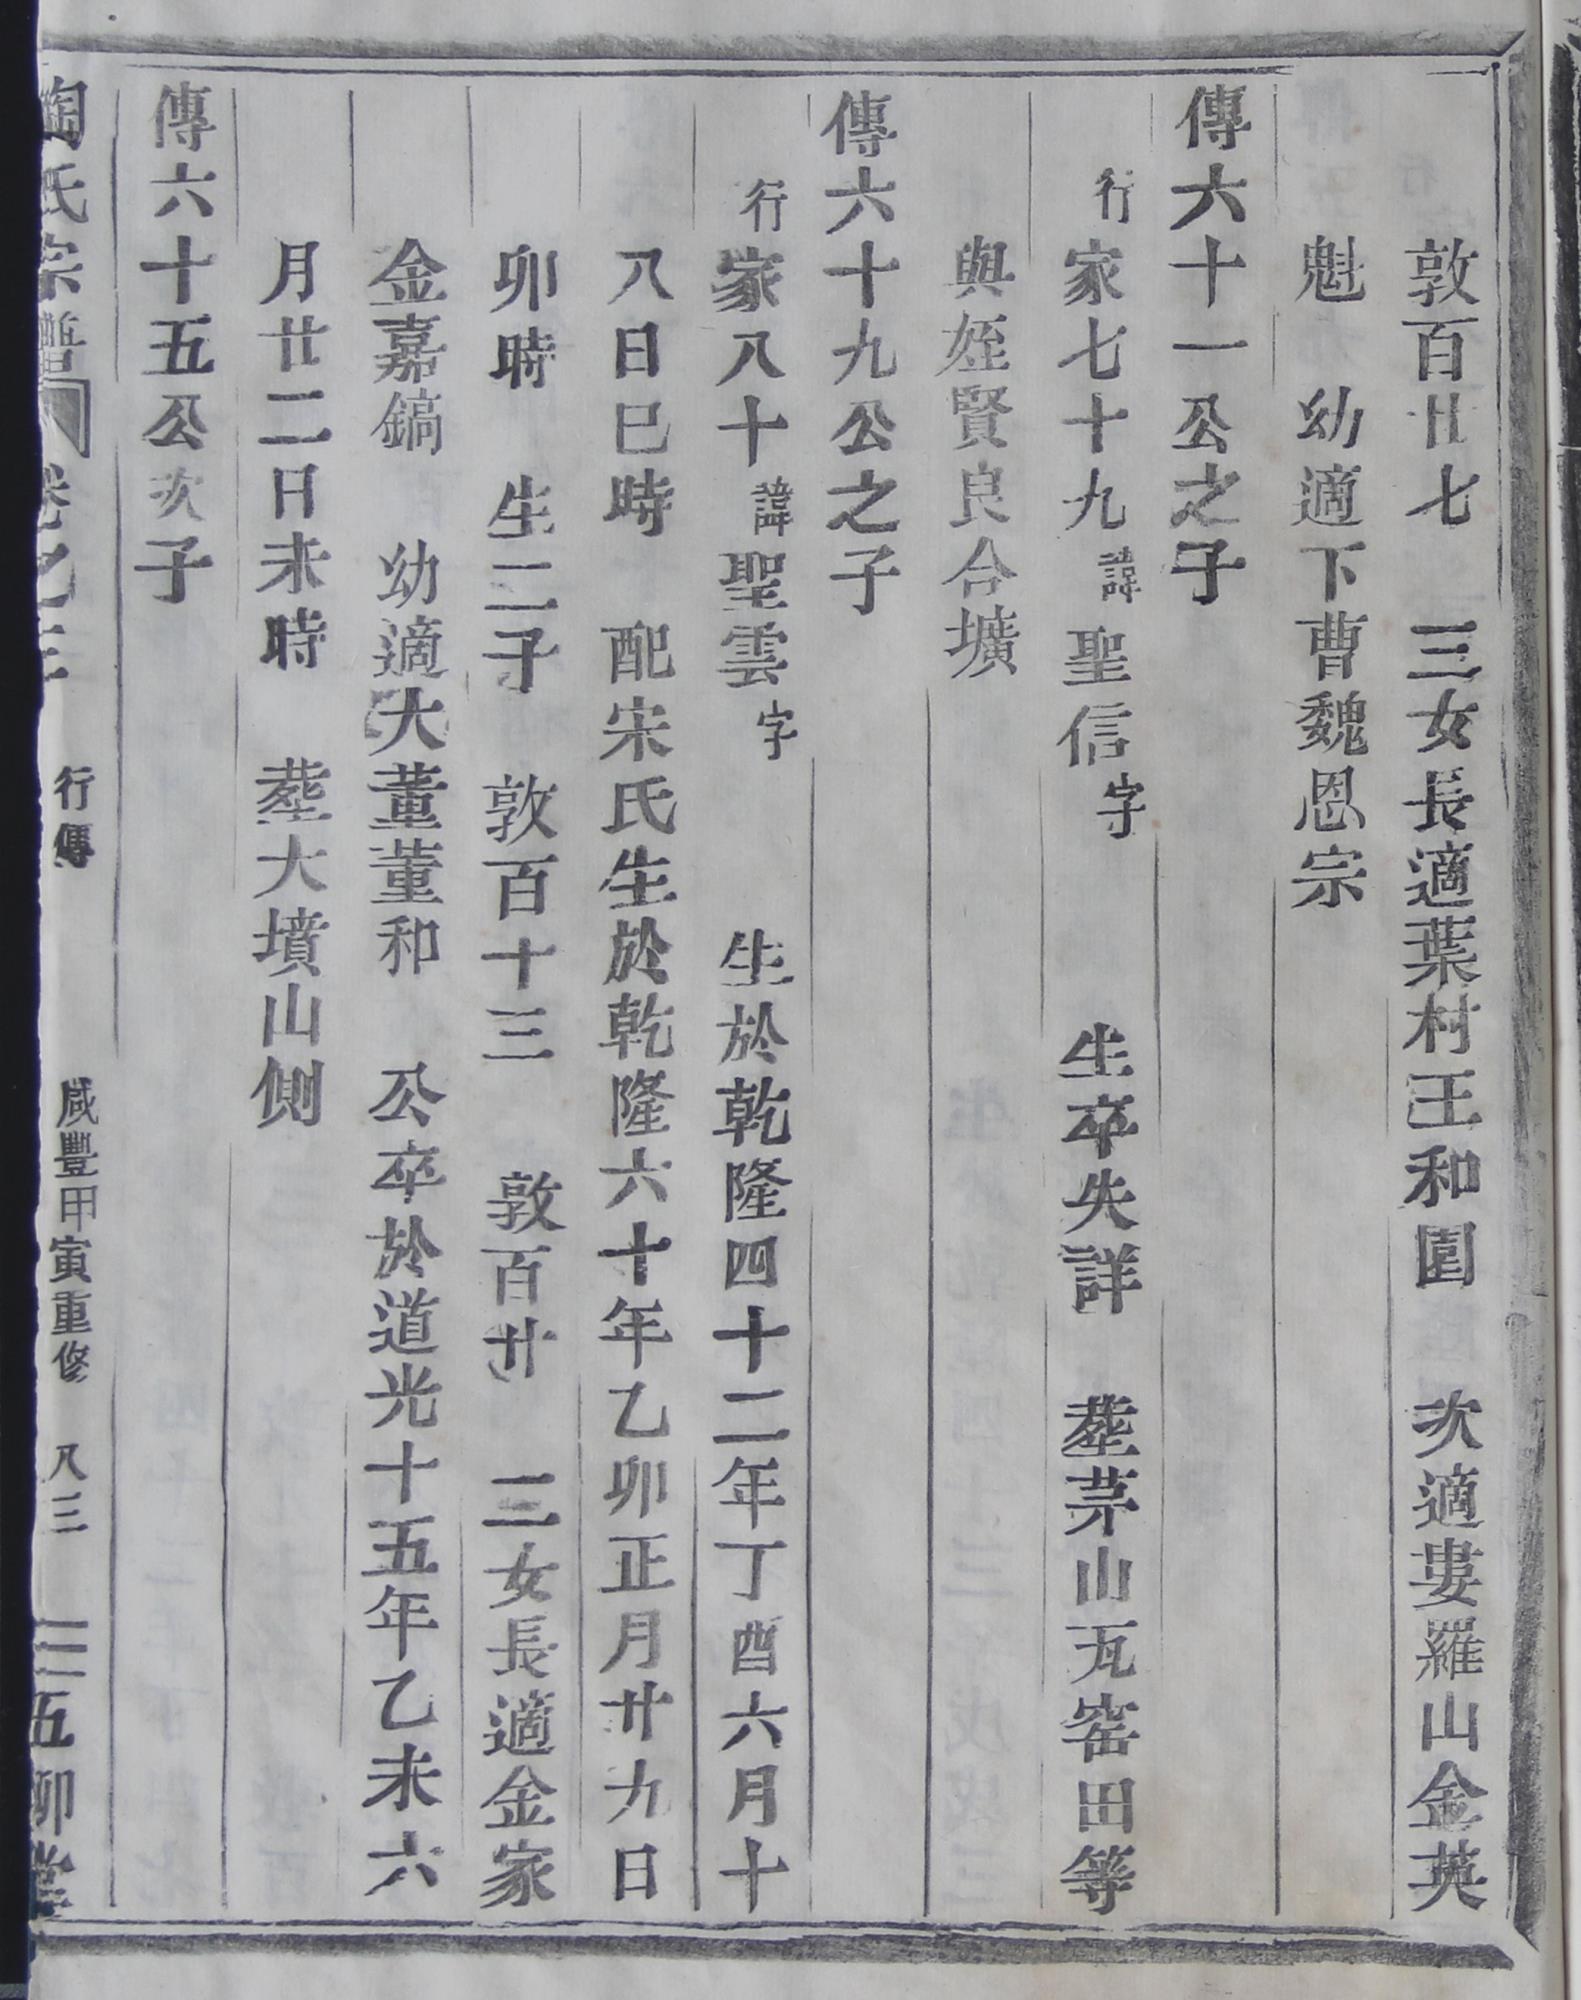 敦百廿七　三女長適葉村王和園　次適婁羅山金英
魁　幼適下曹魏恩宗
傳六十一公之子
行家七十九諱聖信字　生卒失詳　塟茅山瓦窑田等
與姪賢良合壙
傳六十九公之子
行家八十諱聖雲字　生於乾隆四十二年丁酉六月十
八日巳時　配宋氏生於乾隆六十年乙卯正月廿九日
卯時　生二子　敦百十三　敦百廿　三女長適金家
金嘉鎬　幼適大董董和　公卒於道光十五年乙未六
月廿二日未時　塟大墳山側
傳六十五公次子
陶氏宗譜　卷之三　行傳　咸豐甲寅重修　八三　五柳堂